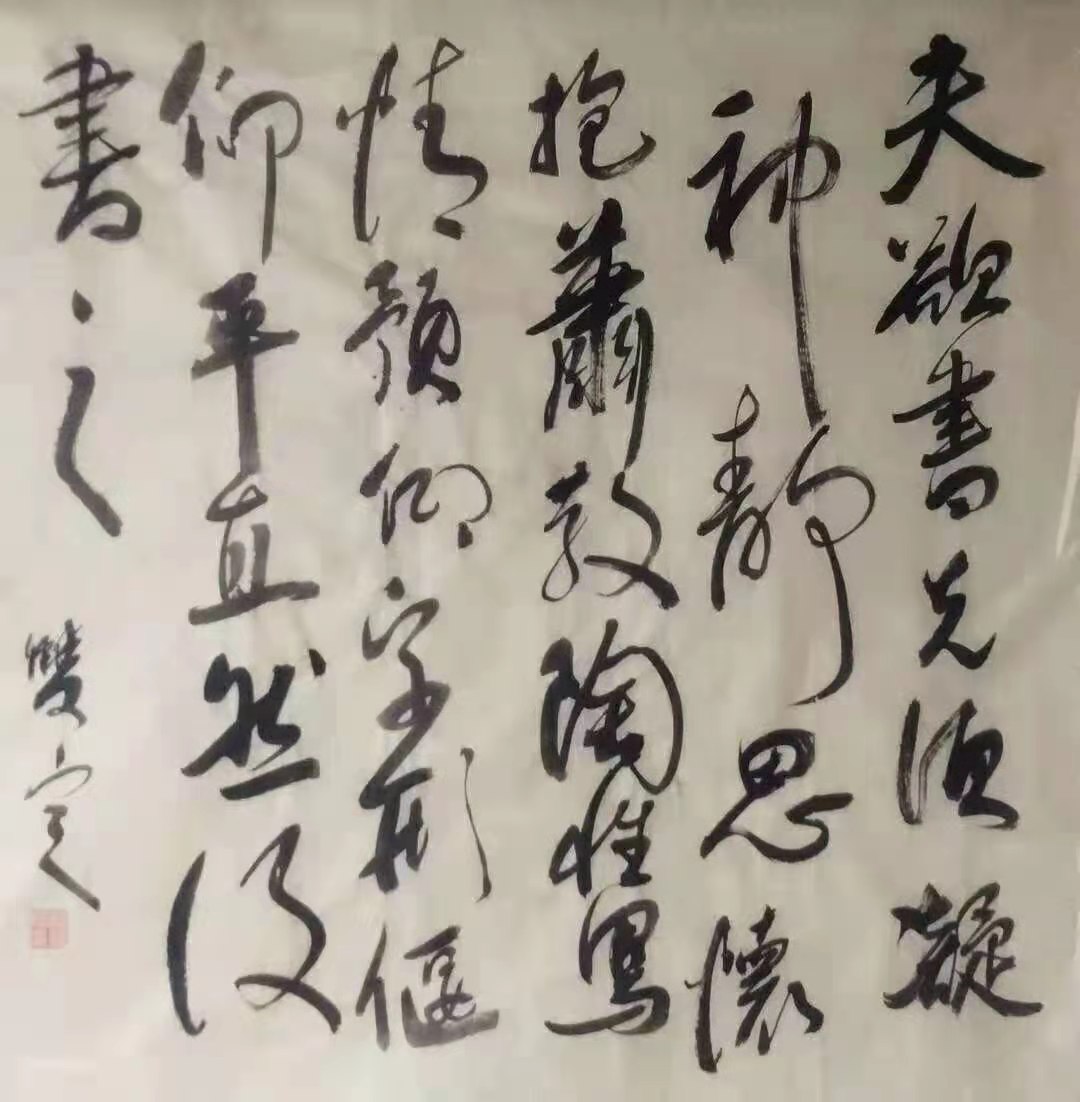 夫欲書先須凝
神靜思懷
抱蕭散陶性寫
情預仰字形偃
仰平直然後
書之
雙定